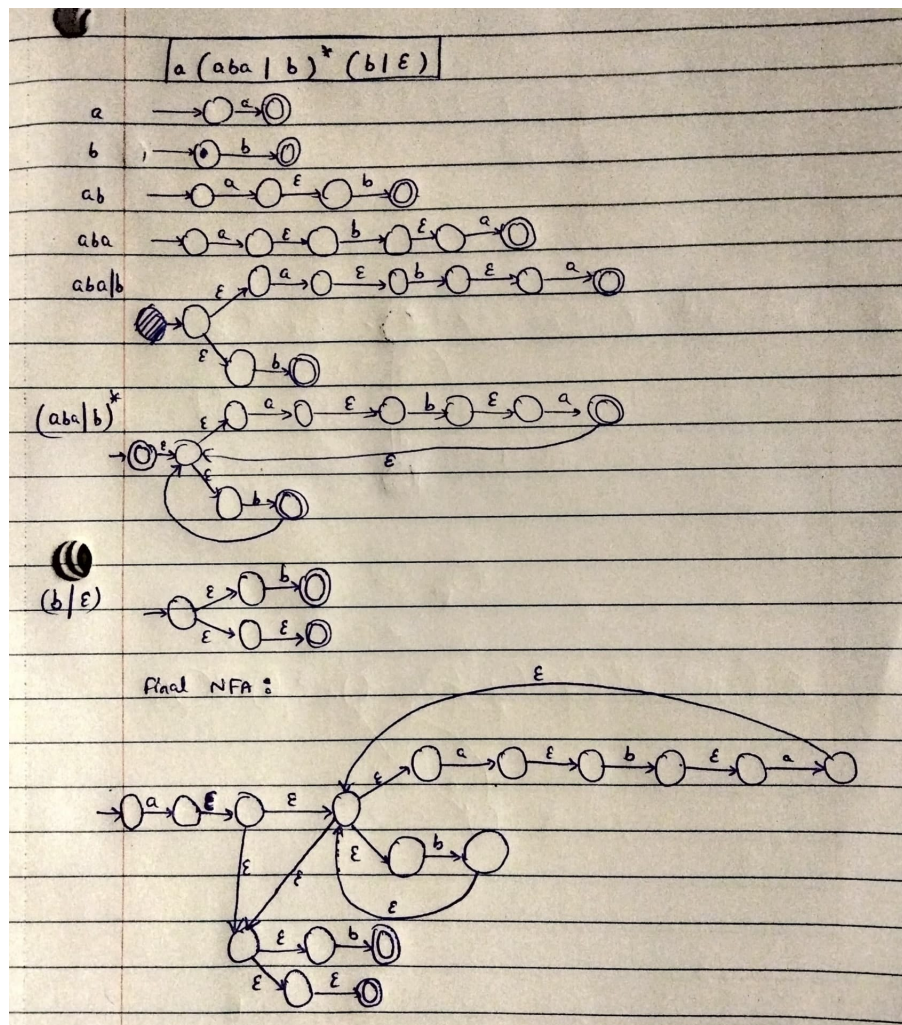 a (aba | b)* (b | ε)
a a
b b
ab a ε b
aba a ε b ε a
aba|b ε a ε b ε a
ε b
(aba|b)* ε a ε b ε a
ε ε
ε b
(b/ε) ε b
ε ε
Final NFA :
ε
ε a ε b ε a
a ε ε
ε b
ε ε ε
ε b
ε ε